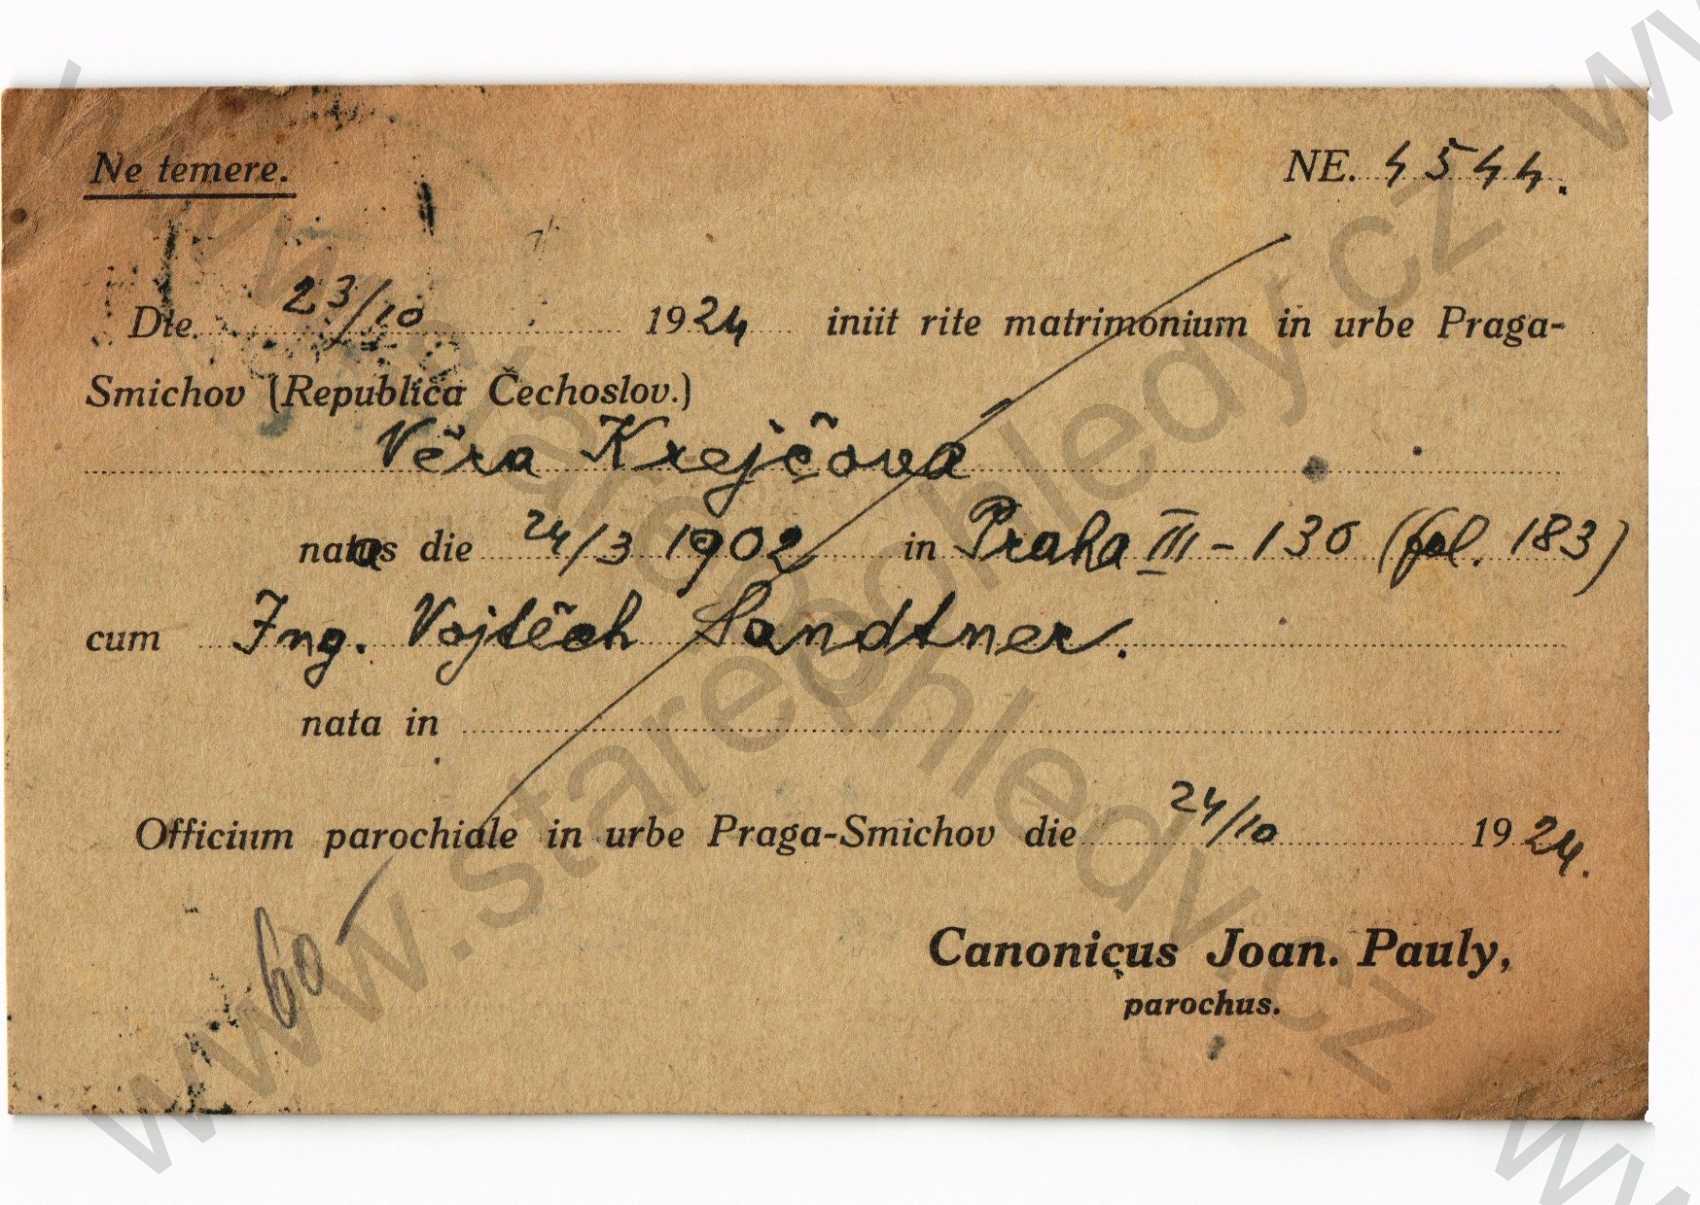 Ne temere. NE. 4544.
Die 23/10 1924 iniit rite matrimonium in urbe Praga-
Smichov (Republica Čechoslov.)
Věra Krejčová
natas die 24/3 1902 in Praha III - 130 (fol. 183)
cum Ing. Vojtěch Sandtner.
nata in
Officium parochiale in urbe Praga-Smichov die 24/10 1924.
60
Canonicus Joan. Pauly,
parochus.
www.starepohledy.cz
www.starepohledy.cz